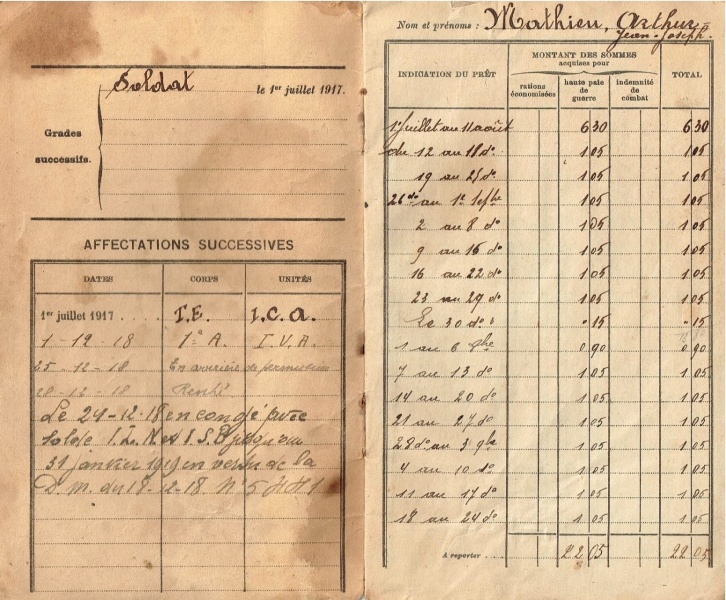 Soldat le 1er juillet 1917.
Grades
successifs.
AFFECTATIONS SUCCESSIVES
DATES CORPS UNITÉS
1er juillet 1917 . . . . I.E. I.C.A.
1 - 12 - 18 1º A. I.V.A.
25 - 12 - 18 En arrière de permission
28 - 12 - 18 Rentré
Le 24-12-18 en congé avec
solde I.L.N et I.S.B jusqu'au
31 janvier 1919 en vertu de la
D.M. du 18-12-18 Nº 5
Nom et prénoms : Mathieu, Arthur
Jean-Joseph.
INDICATION DU PRÊT MONTANT DES SOMMES TOTAL
acquises pour
rations économisées haute paie de guerre indemnité de combat
1r juillet au 11 août 6 30 6 30
du 12 au 18 do 1 05 1 05
19 au 25 do 1 05 1 05
26 do au 1r 7bre 1 05 1 05
2 au 8 do 1 05 1 05
9 au 15 do 1 05 1 05
16 au 22 do 1 05 1 05
23 au 29 do 1 05 1 05
Le 30 do - 15 - 15
1 au 6 8bre 0 90 0 90
7 au 13 do 1 05 1 05
14 au 20 do 1 05 1 05
21 au 27 do 1 05 1 05
28 do au 3 9bre 1 05 1 05
4 au 10 do 1 05 1 05
11 au 17 do 1 05 1 05
18 au 24 do 1 05 1 05
A reporter . . . . 22 05 22 05